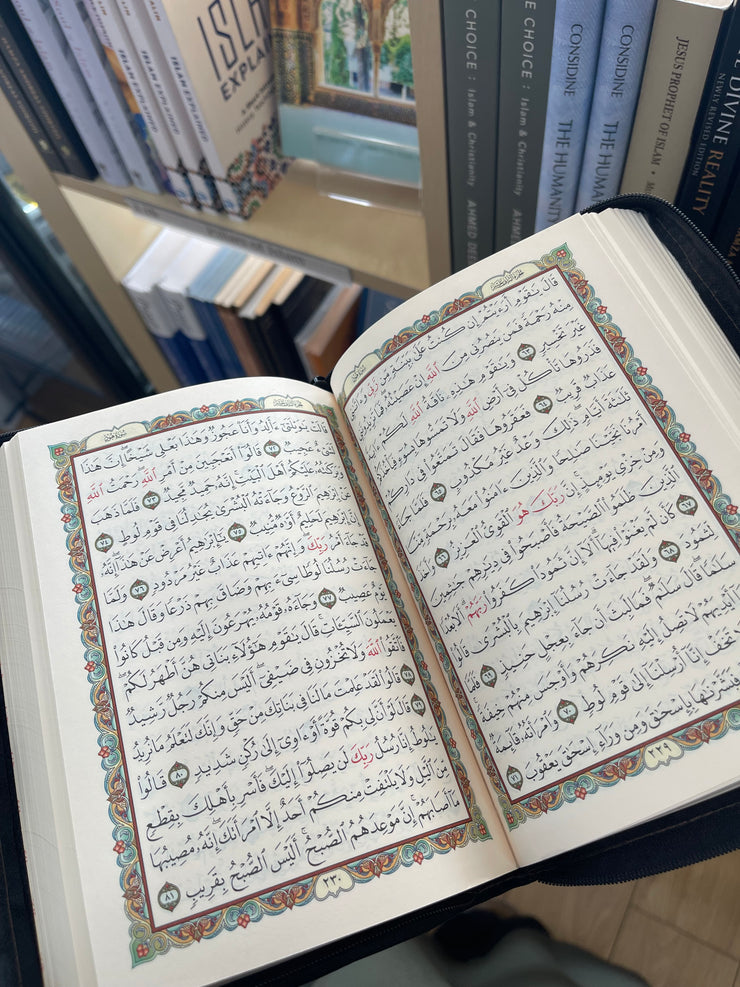 ISLAM EXPLAINED
ISLAM EXPLAINED
ISLAM EXPLAINED
CHOICE : Islam & Christianity AHMED DEEDAT
THE CHOICE : Islam & Christianity AHMED
CONSIDINE THE HUMANITY
CONSIDINE THE HUMANITY
JESUS PROPHET OF ISLAM
DIVINE REALITY
NEWLY REVISED EDITION
قَالَ يَٰقَوْمِ أَرَءَيْتُمْ إِن كُنتُ عَلَىٰ بَيِّنَةٍ مِّن رَّبِّي
مِنْهُ رَحْمَةً فَمَن يَنصُرُنِي مِنَ ٱللَّهِ إِنْ عَصَيْتُهُۥ فَمَا تَزِيدُونَنِي
غَيْرَ تَخْسِيرٍ ٦٣ وَيَٰقَوْمِ هَٰذِهِۦ نَاقَةُ ٱللَّهِ لَكُمْ
فَذَرُوهَا تَأْكُلْ فِيٓ أَرْضِ ٱللَّهِ وَلَا تَمَسُّوهَا بِسُوٓءٍ فَيَأْخُذَكُمْ
عَذَابٌ قَرِيبٌ ٦٤ فَعَقَرُوهَا فَقَالَ تَمَتَّعُوا۟ فِي دَارِكُمْ
ثَلَٰثَةَ أَيَّامٍ ۖ ذَٰلِكَ وَعْدٌ غَيْرُ مَكْذُوبٍ ٦٥ فَلَمَّا جَآءَ
أَمْرُنَا نَجَّيْنَا صَٰلِحًا وَٱلَّذِينَ ءَامَنُوا۟ مَعَهُۥ بِرَحْمَةٍ مِّنَّا
وَمِنْ خِزْيِ يَوْمِئِذٍ ۗ إِنَّ رَبَّكَ هُوَ ٱلْقَوِيُّ ٱلْعَزِيزُ ٦٦ وَأَخَذَ
ٱلَّذِينَ ظَلَمُوا۟ ٱلصَّيْحَةُ فَأَصْبَحُوا۟ فِي دِيَٰرِهِمْ جَٰثِمِينَ
٦٧ كَأَن لَّمْ يَغْنَوْا۟ فِيهَآ ۗ أَلَآ إِنَّ ثَمُودَا۟ كَفَرُوا۟ رَبَّهُمْ ۗ أَلَا بُعْدًا
لِّثَمُودَ ٦٨ وَلَقَدْ جَآءَتْ رُسُلُنَآ إِبْرَٰهِيمَ بِٱلْبُشْرَىٰ قَالُوا۟
سَلَٰمًا ۖ قَالَ سَلَٰمٌ ۖ فَمَا لَبِثَ أَن جَآءَ بِعِجْلٍ حَنِيذٍ ٦٩ فَلَمَّا
أَيْدِيَهُمْ لَا تَصِلُ إِلَيْهِ نَكِرَهُمْ وَأَوْجَسَ مِنْهُمْ خِيفَةً ۚ
لَا تَخَفْ إِنَّآ أُرْسِلْنَآ إِلَىٰ قَوْمِ لُوطٍ ٧٠ وَٱمْرَأَتُهُۥ قَآئِمَةٌ
فَبَشَّرْنَٰهَا بِإِسْحَٰقَ وَمِن وَرَآءِ إِسْحَٰقَ يَعْقُوبَ ٧١
٢٢٩
سُورَةُ هُودٍ
قَالَتْ يَٰوَيْلَتَىٰٓ ءَأَلِدُ وَأَنَا۠ عَجُوزٌ وَهَٰذَا بَعْلِي شَيْخًا ۖ إِنَّ هَٰذَا
لَشَيْءٌ عَجِيبٌ ٧٢ قَالُوٓا۟ أَتَعْجَبِينَ مِنْ أَمْرِ ٱللَّهِ ۖ رَحْمَتُ ٱللَّهِ
وَبَرَكَٰتُهُۥ عَلَيْكُمْ أَهْلَ ٱلْبَيْتِ ۚ إِنَّهُۥ حَمِيدٌ مَّجِيدٌ ٧٣ فَلَمَّا ذَهَبَ
عَنْ إِبْرَٰهِيمَ ٱلرَّوْعُ وَجَآءَتْهُ ٱلْبُشْرَىٰ يُجَٰدِلُنَا فِي قَوْمِ لُوطٍ ٧٤
إِنَّ إِبْرَٰهِيمَ لَحَلِيمٌ أَوَّٰهٌ مُّنِيبٌ ٧٥ يَٰٓإِبْرَٰهِيمُ أَعْرِضْ عَنْ هَٰذَآ ۖ إِنَّهُۥ
قَدْ جَآءَ أَمْرُ رَبِّكَ ۖ وَإِنَّهُمْ ءَاتِيهِمْ عَذَابٌ غَيْرُ مَرْدُودٍ ٧٦ وَلَمَّا
جَآءَتْ رُسُلُنَا لُوطًا سِيٓءَ بِهِمْ وَضَاقَ بِهِمْ ذَرْعًا وَقَالَ هَٰذَا
يَوْمٌ عَصِيبٌ ٧٧ وَجَآءَهُۥ قَوْمُهُۥ يُهْرَعُونَ إِلَيْهِ وَمِن قَبْلُ كَانُوا۟
يَعْمَلُونَ ٱلسَّيِّـَٔاتِ ۚ قَالَ يَٰقَوْمِ هَٰٓؤُلَآءِ بَنَاتِي هُنَّ أَطْهَرُ لَكُمْ ۖ
فَٱتَّقُوا۟ ٱللَّهَ وَلَا تُخْزُونِ فِي ضَيْفِيٓ ۖ أَلَيْسَ مِنكُمْ رَجُلٌ رَّشِيدٌ
٧٨ قَالُوا۟ لَقَدْ عَلِمْتَ مَا لَنَا فِي بَنَاتِكَ مِنْ حَقٍّ وَإِنَّكَ لَتَعْلَمُ مَا نُرِيدُ
٧٩ قَالَ لَوْ أَنَّ لِي بِكُمْ قُوَّةً أَوْ ءَاوِيٓ إِلَىٰ رُكْنٍ شَدِيدٍ ٨٠ قَالُوا۟
يَٰلُوطُ إِنَّا رُسُلُ رَبِّكَ لَن يَصِلُوٓا۟ إِلَيْكَ ۖ فَأَسْرِ بِأَهْلِكَ بِقِطْعٍ
مِّنَ ٱلَّيْلِ وَلَا يَلْتَفِتْ مِنكُمْ أَحَدٌ إِلَّا ٱمْرَأَتَكَ ۖ إِنَّهُۥ مُصِيبُهَا
مَآ أَصَابَهُمْ ۚ إِنَّ مَوْعِدَهُمُ ٱلصُّبْحُ ۚ أَلَيْسَ ٱلصُّبْحُ بِقَرِيبٍ ٨١
٢٣٠